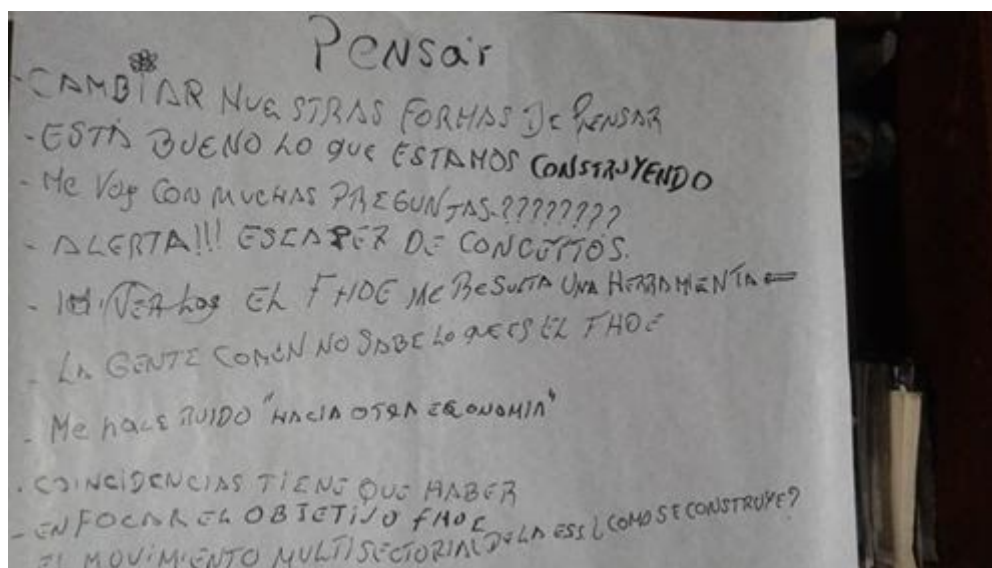 Pensar
-CAMBIAR NUESTRAS FORMAS DE PENSAR
-ESTÁ BUENO LO QUE ESTAMOS CONSTRUYENDO
- Me Voy CON MUCHAS PREGUNTAS-????????
- ALERTA!!! DE CONCEPTOS.
- EL FHOE Me RESULTA UNA HERRAMIENTA
- LA GENTE COMÚN NO SABE LO QUE ES EL FHOE
- Me hace RUIDO "HACIA OTRA ECONOMIA"
. COINCIDENCIAS TIENE QUE HABER
- ENFOCAR EL OBJETIVO FHOE
EL MOVIMIENTO MULTISECTORIAL DE LA ESS ¿COMO SE CONSTRUYE?